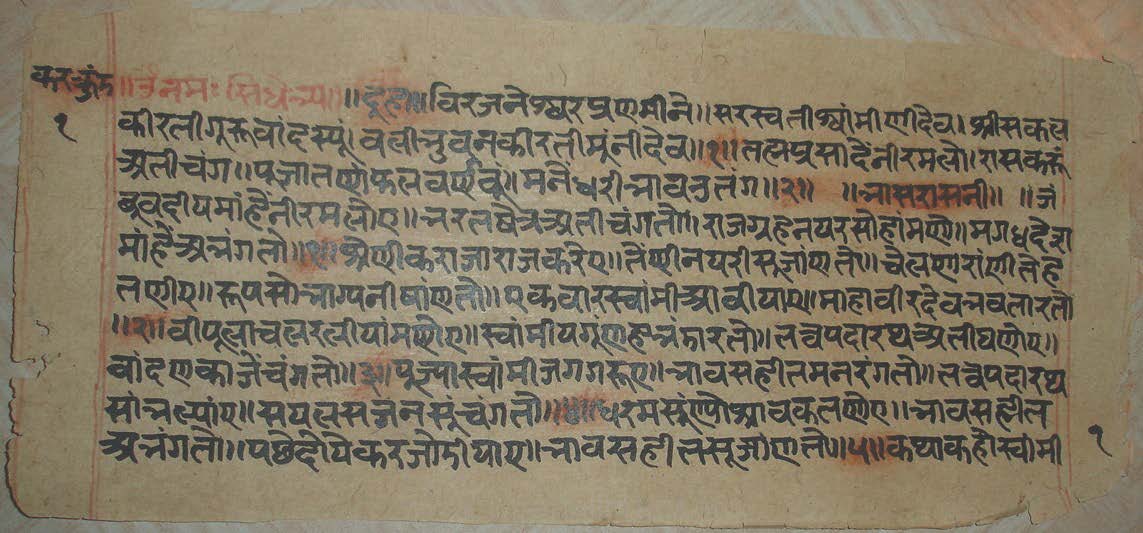 करकुंड
१
॥उं नमः सिधेभ्य॥ ॥दूहा॥ वीरजनेश्वर प्रणमीने॥ सरस्वती श्वांमीणीदेव। श्रीसकल
कीरती गूरु वांदस्यू। वली भुवनकीरती मुंनीदेव॥१॥ तह्म प्रसादे नीरमलो। रास करूं
अती चंग॥ पूजातणो फल वर्णवुं॥ मनै धरी भाव नुतंग॥२॥ ॥भासरासनी॥ ॥जं
बूवदीप मांहै नीरमलोए॥ भरतषेत्र अती चंगतो॥ राजग्रहे नयर सोहांमणो॥ मगधदेश
मांहै अभंगतो॥१॥ श्रेणीक राजा राज करेए॥ तेणी नयरी सूजांणतो॥ चेलणा रांणी तेहे
तणीए॥ रूपसोभाग्यनी षांणतो॥ एक वार स्वांमी आवीयाए॥ माहावीरदेव भवतारतो
॥२॥ वीपूलाचल रलीयांमणोए॥ स्वांमीय गूणह भंडारतो॥ तत्वपदारथ अती घणोए॥
वांदण काजें चंगतो॥३॥ पूज्या स्वांमी जगगरूए॥ भाव सहीत मनरंगतो॥ तत्वपदारथ
सांभल्यांए॥ सयल सजन सूचंगतो॥४॥ धरम सुंण्यो श्रावकतणोए॥ भाव सहीत
अभंगतो॥ पछे दोयै कर जोडीयाए॥ भाव सहीत सूजांणतो॥५॥ कथा कहो स्वांमी
१